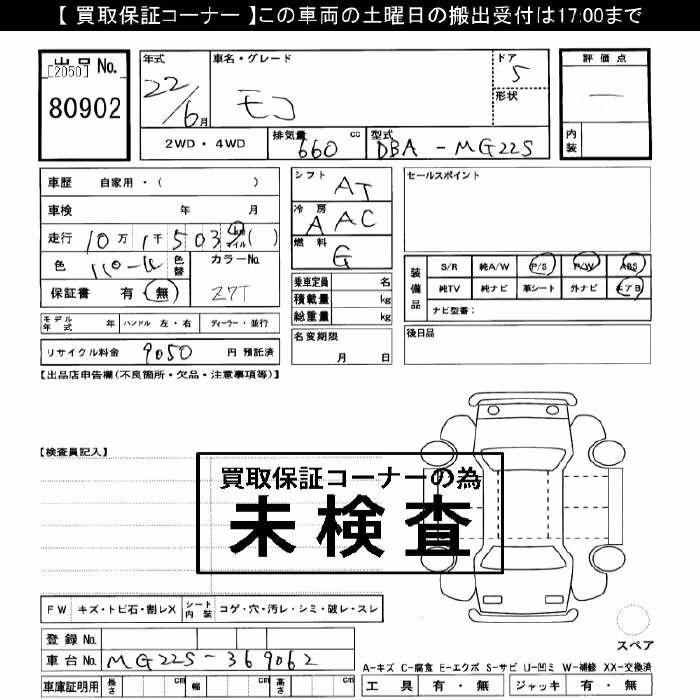 【 買取保証コーナー 】この車両の土曜日の搬出受付は17:00まで
出品 No.
[2050]
80902
年式
22/6月
車名・グレード
モコ
ドア
5
形状
評 価 点
―
内装
2WD・4WD
排気量 660 cc
型式 DBA-MG22S
車歴 自家用・( )
車検 年 月
走行 10万1千503 km マイル ( )
色
色替
カラーNo.
Z7T
保証書 有・無
シフト AT
冷房 AAC
燃料 G
乗車定員 名
積載量 kg
総重量 kg
セールスポイント
装備品
S/R 純A/W P/S P/W ABS
純TV 純ナビ 革シート 外ナビ エアB
ナビ型番：
モデル年式 年 ハンドル 左・右 ディーラー・並行
リサイクル料金 9050 円 預託済
名変期限
月 日
後日品
【出品店申告欄(不良箇所・欠品・注意事項等)】
【検査員記入】
買取保証コーナーの為
未検査
FW キズ・トビ石・割レX シート内装 コゲ・穴・汚レ・シミ・破レ・スレ
スペア
登録 No.
車台 No. MG22S-369062
車庫証明用 長さ cm 幅 cm 高さ cm
A-キズ C-腐食 E-エクボ S-サビ U-凹ミ W-補修 XX-交換済
工具 有・無 ジャッキ 有・無